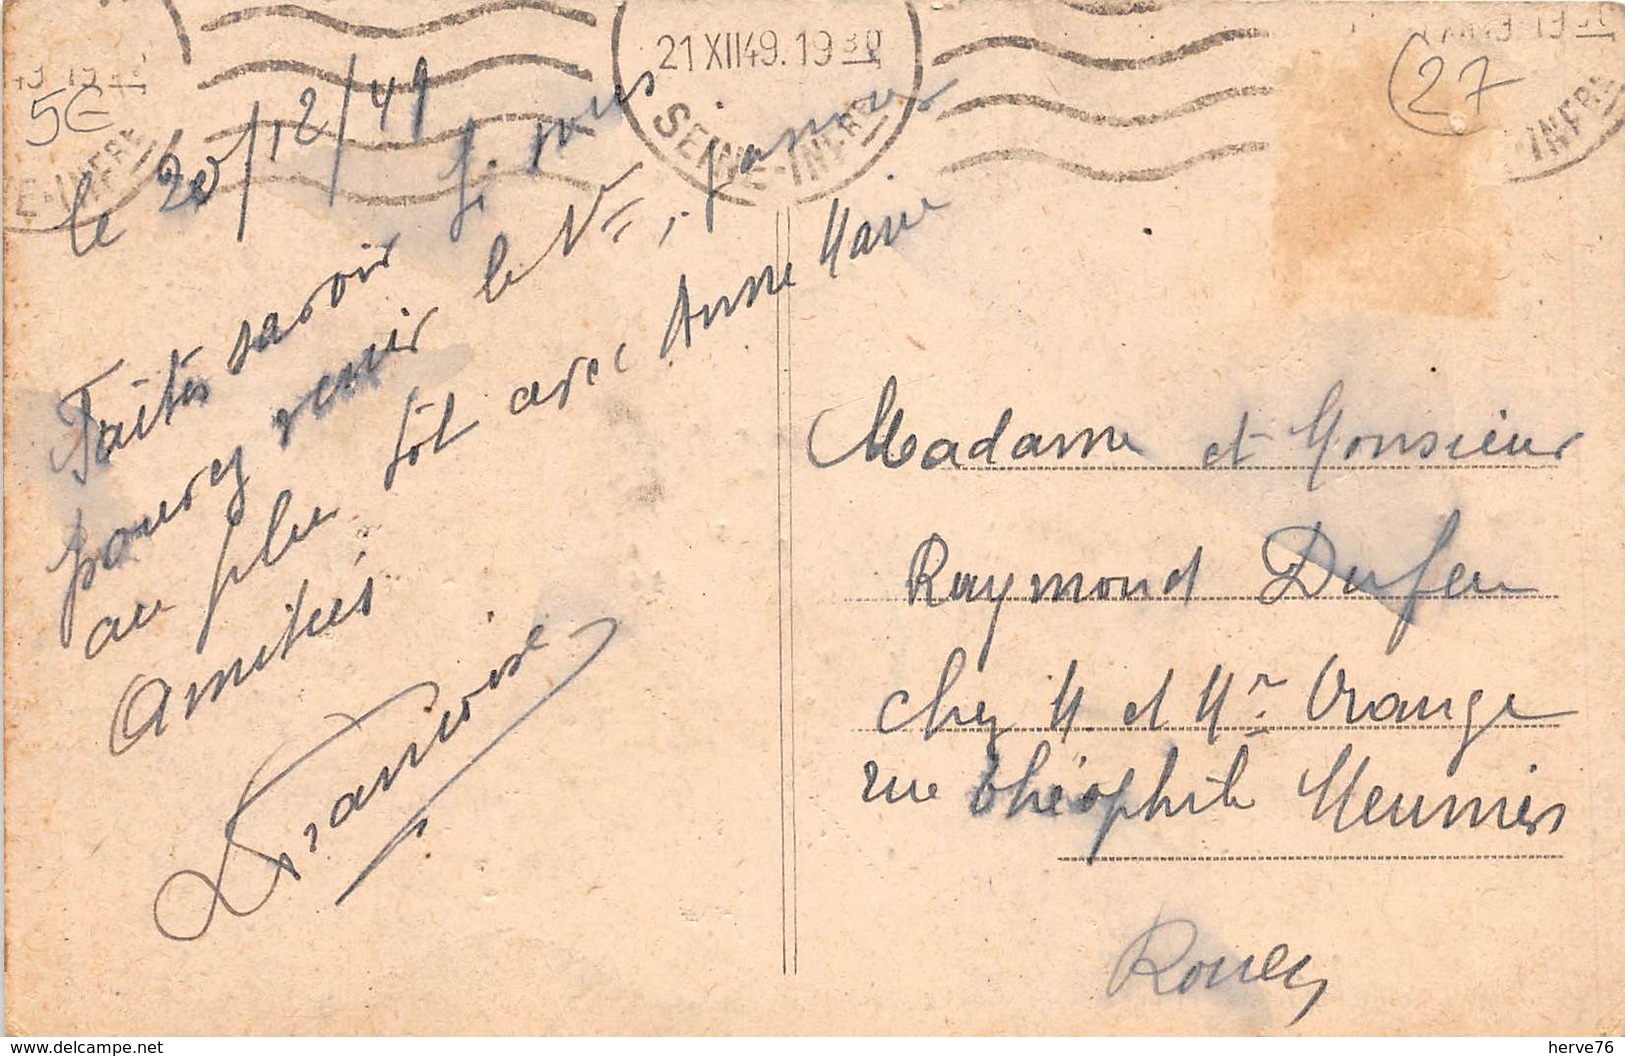 21 XII 49. 19 30
SEINE-INFRE
5€
27
le 20/12/49
Faites savoir si vous
pouvez venir le 1er janvier
au plus tôt avec Anne Marie
Amitiés
Françoise
Madame et Monsieur
Raymond Dufeu
chez M et Mr Orange
rue théophile Meunier
Rouen
herve76